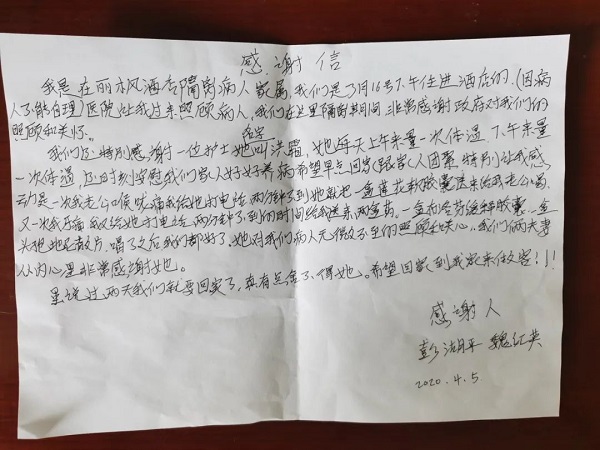 感谢信
我是在丽枫酒店隔离病人家属,我们是3月16号下午住进酒店的.(因病
人不能自理)医院让我过来照顾病人,我们在这里隔离其期间非常感谢政府对我们的
照顾和关怀.
我们还特别感谢一位护士她叫洪霜,她每天上午来量一次体温 下午来量
一次体温,还时刻安慰我们家人好好养病希望早点回家(跟家人团聚 特别让我感
动是一次我老公喉咙痛我给她打电话 两分钟不到她就把一盒莲花 胶囊送来给我老公喝.
又一次我牙痛我又给她打电话 两分钟不到的时间给我送来两盒药。一盒布洛芬缓释胶囊 一盒
头孢地尼散片 喝了之后我们都好了,她对我们病人无微不至的照顾和关心.我们俩夫妻
从内心里非常感谢她。
虽说过两天我们就要回家了,真有点舍不得她。希望回家到我家来做客!!!
感谢人
彭湖平 魏红英
2020.4.5